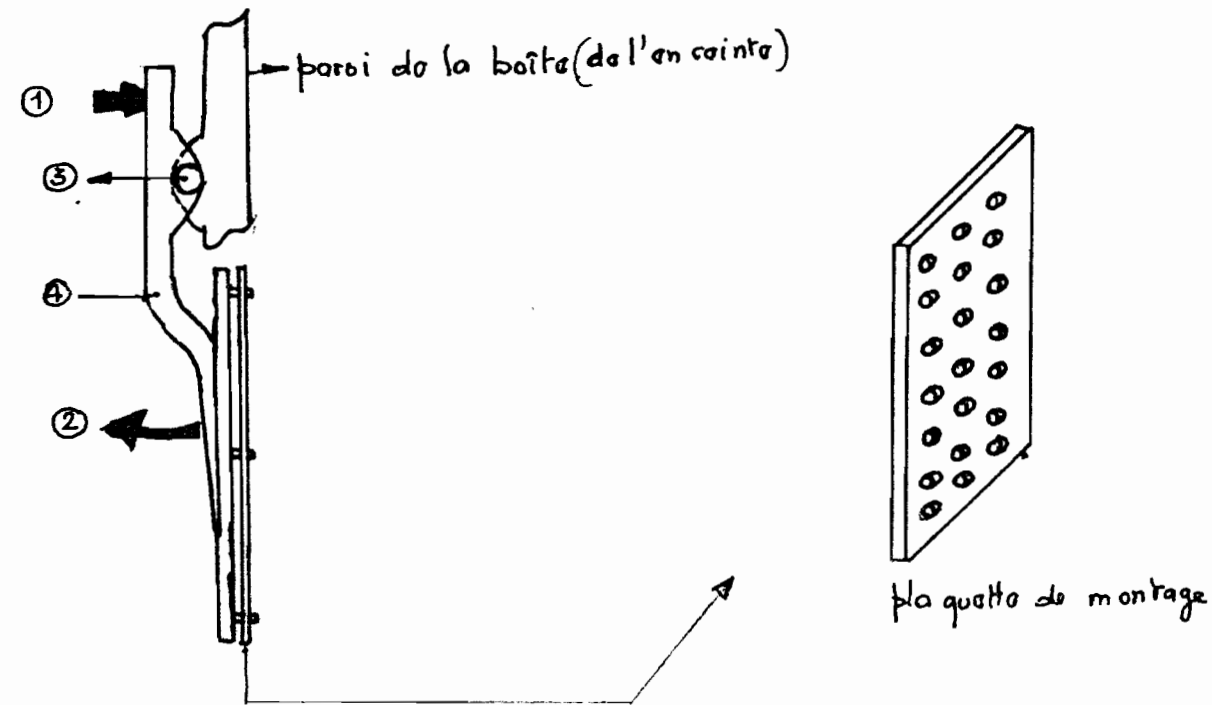 paroi de la boîte (de l'enceinte)
①
③
④
②
plaquette de montage